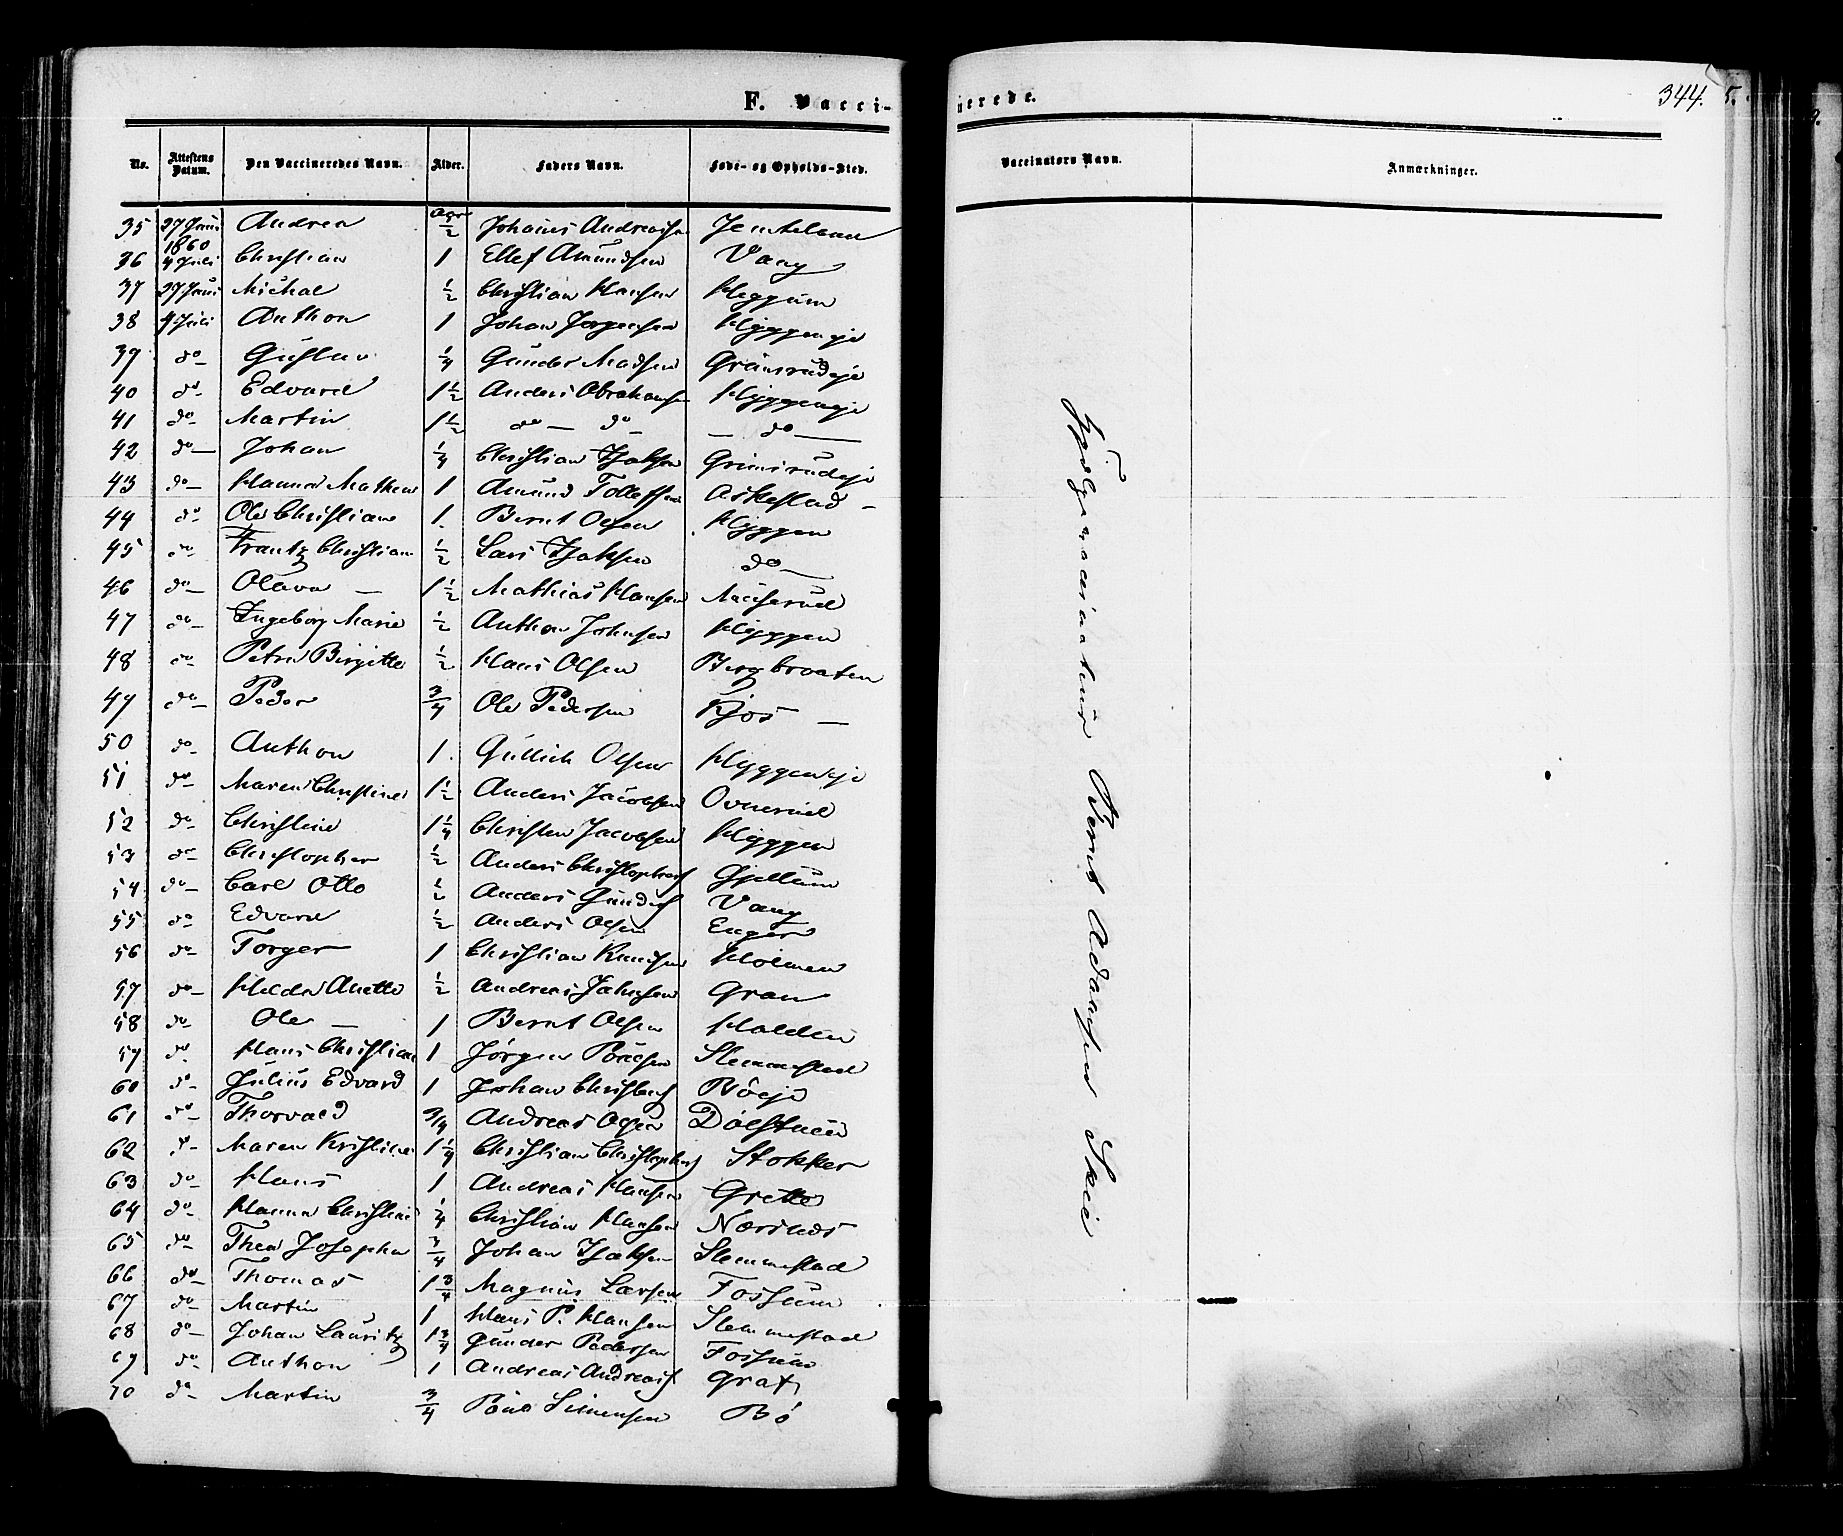 F. Vacci-
nerede.
344.
No. Attestens Datum. Den Vaccineredes Navn. Alder. Faders Navn. Føde- og Opholds-Sted. Vaccinators Navn. Anmærkninger.
35 27 Juni 1860 Andrea 1/2 Johannes Andreassen
36 4 Juli Christian 1 Ellef Amundsen Vang
37 27 Juni Michal 1/2 Christian Hansen Heggum
38 4 Juli Anthon 1 Johan Jørgensen Hyggeneje
39 do- Gustav 1/4 Gunder Madsen Grimsrudeje
40 do- Edvard 1 1/2 Anders Abrahamsen Hyggeneje
41 do- Martin 1 1/2 do- do- - do-
42 do- Johan 1/4 Christian Isaksen Grimsrudeje
43 do- Hanna Mathea 1 Amund Tollefsen Askestad -
44 do- Ole Christian 1. Bernt Olsen Hyggen
45 do- Frantz Christian 1/2 Lars Isaksen do-
46 do- Olava - 1 1/2 Mathias Hansen
47 do- Ingeborg Marie 1/2 Anthon Johnsen Hyggen
48 do- Petra Birgitte 1/2 Hans Olsen Bergbraaten
49 do- Peder 3/4 Ole Pedersen Kjos -
50 do- Anthon 1. Gullich Olsen Hyggeneje
51 do- Maren Christine 1 1/2 Anders Jacobsen Ovnerud
52 do- Christine 1 1/4 Christen Jacobsen Hyggen
53 do- Christopher 1/2 Anders Christophers Gjellum
54 do- Carl Otto 1/2 Anders Gunders Vang
55 do- Edvard 1/2 Anders Olsen Enger
56 do- Torger 1 Christian Knudsen Holmen
57 do- Helda Anette 1/2 Andreas Jahnsen Gran
58 do- Ole - 1 Bernt Olsen Holden
59 do Hans Christian 1 Jørgen Poulsen Slemmestad
60 do- Julius Edvard 1 Johan Christens Böeje
61 do- Thorvald 3/4 Andreas Olsen
62 do- Maren Kristine 1 1/4 Christian Christophers Stokker
63 do- Hans 1 Andreas Hansen Grette
64 do- Hanna Christine 1/4 Christian Hansen Næsnes
65 do- Thea Josepha 3/4 Johan Isaksen Slemmestad
66 do- Thomas 1 3/4 Magnus Larsen Fossum
67 do- Martin 1 Hans P. Hansen Slemmestad
68 do- Johan Lauritz 1 3/4 Gunder Pedersen Fossum
69 do- Anthon 1 Andreas Andreass Graf
70 do- Martin 3/4 Poul Simensen Bö
Hjælpevaccinateur Bernt Adamsen Skeie